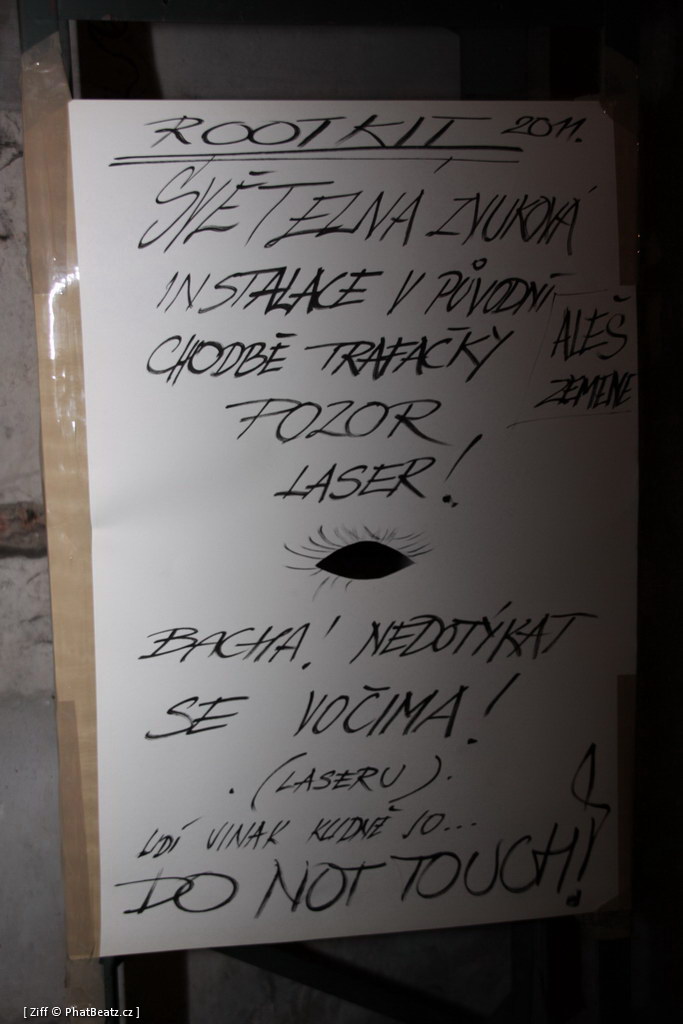 ROOTKIT 2011.
SVĚTELNÁ ZVUKOVÁ
INSTALACE V PŮVODNÍ
CHODBĚ TRAFAČKY
ALEŠ
ZEMENE
POZOR
LASER!
BACHA! NEDOTÝKAT
SE VOČIMA!
. (LASERU).
LIDÍ JINAK KLIDNĚ JO...
DO NOT TOUCH!
[ Ziff © PhatBeatz.cz ]